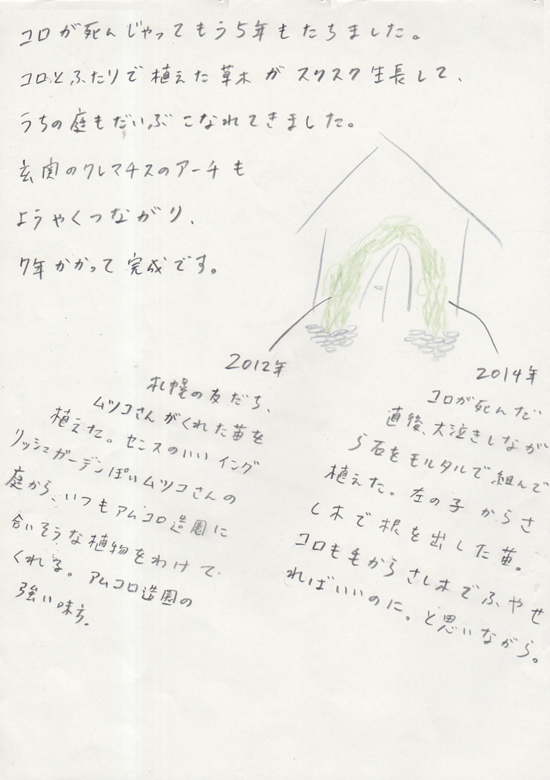 コロが死んじゃってもう5年もたちました。
コロとふたりで植えた草木がスクスク生長して、
うちの庭もだいぶこなれてきました。
玄関のクレマチスのアーチも
ようやくつながり、
7年かかって完成です。
2012年
札幌の友だち、
ムツコさんがくれた苗を
植えた。センスのいいイング
リッシュガーデンぽいムツコさんの
庭から、いつもアムコロ造園に
合いそうな植物をわけて
くれる。アムコロ造園の
強い味方。
2014年
コロが死んだ
直後、大泣きしなが
ら石をモルタルで組んで
植えた。左の子からさ
し木で根を出した苗。
コロも毛からさし木でふやせ
ればいいのに。と思いながら。